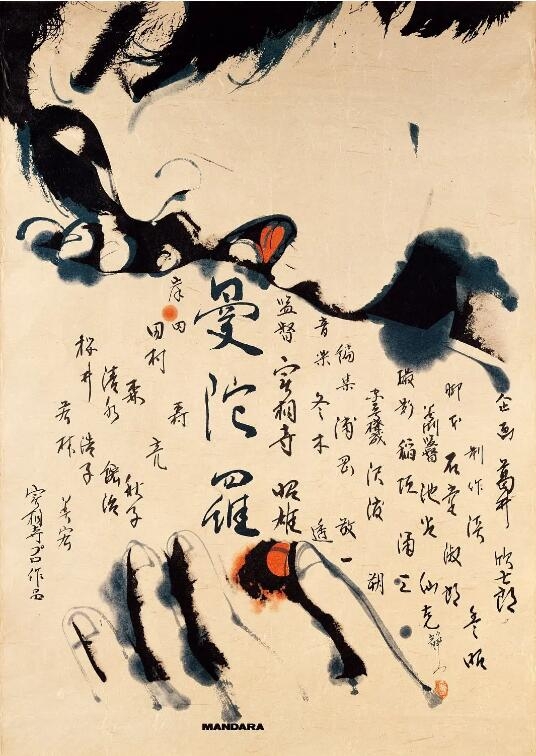 企画 葛井 欣士郎
制作 淡 豊昭
脚本 石堂 淑朗
美術 池谷 仙克
撮影 稲垣 涌三
沢渡 朔
編集 浦岡 敬一
音楽 冬木 透
監督 実相寺 昭雄
曼陀羅
岸田
田村 亮
森 秋子
清水 紘治
桜井 浩子
若林 美宏
実相寺プロ作品
MANDARA